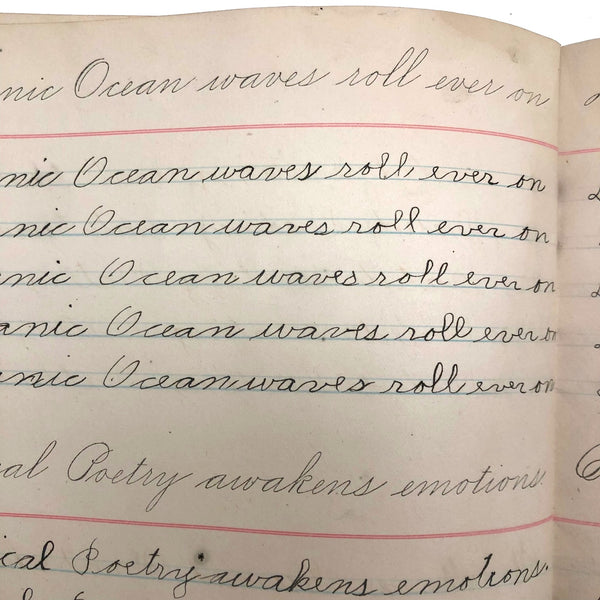 nic Ocean waves roll ever on
nic Ocean waves roll ever on
nic Ocean waves roll ever on
nic Ocean waves roll ever on
anic Ocean waves roll ever on
nic Ocean waves roll ever on
al Poetry awakens emotions.
ical Poetry awakens emotions.